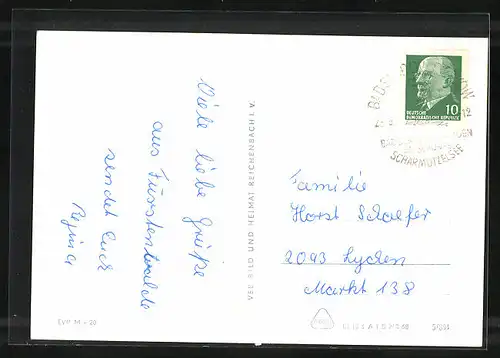 Viele liebe Grüße
aus Fürstenwalde
sendet Euch
Regina
EVP M -.20
VEB BILD UND HEIMAT REICHENBACH I. V.
DEUTSCHE
DEMOKRATISCHE REPUBLIK
10
12
SCHARMÜTZELSEE
Familie
Horst Schaefer
2093 Lychen
Markt 138